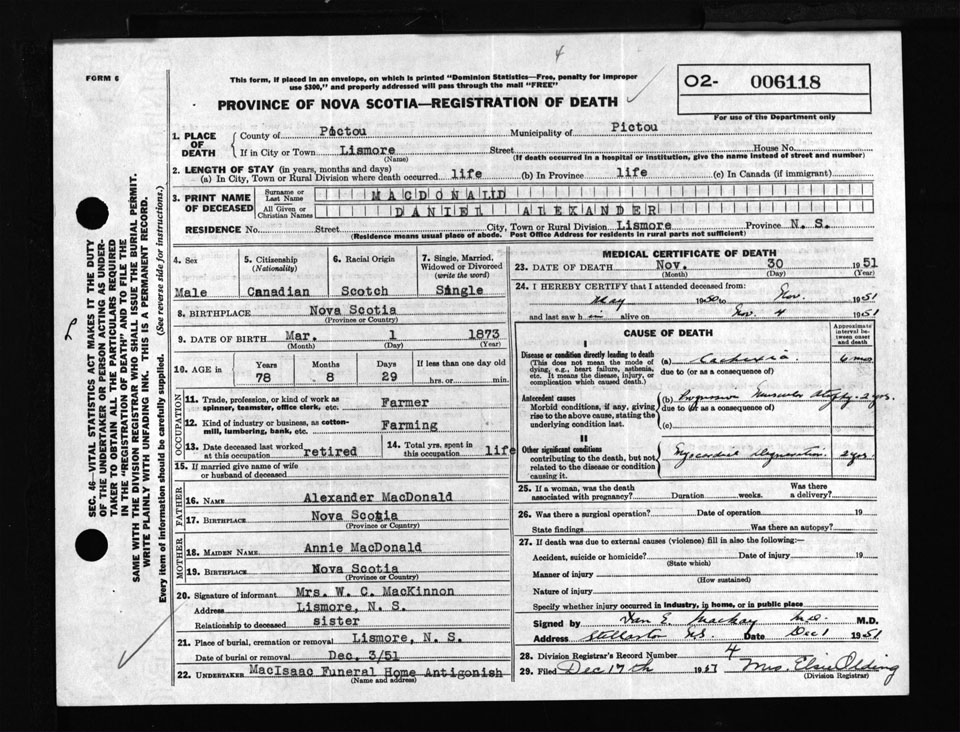 4
FORM 6
This form, if placed in an envelope, on which is printed "Dominion Statistics—Free, penalty for improper
use $300," and properly addressed will pass through the mail "FREE"
O2- 006118
For use of the Department only
PROVINCE OF NOVA SCOTIA—REGISTRATION OF DEATH
1. PLACE OF DEATH County of Pictou Municipality of Pictou
If in City or Town Lismore Street House No.
(Name) (If death occurred in a hospital or institution, give the name instead of street and number)
2. LENGTH OF STAY (in years, months and days)
(a) In City, Town or Rural Division where death occurred life (b) In Province life (c) In Canada (if immigrant)
3. PRINT NAME OF DECEASED Surname or Last Name MACDONALD
All Given or Christian Names DANIEL ALEXANDER
RESIDENCE No. Street City, Town or Rural Division Lismore Province N. S.
(Residence means usual place of abode. Post Office Address for residents in rural parts not sufficient)
4. Sex 5. Citizenship (Nationality) 6. Racial Origin 7. Single, Married, Widowed or Divorced (write the word)
Male Canadian Scotch Single
8. BIRTHPLACE Nova Scotia
(Province or Country)
9. DATE OF BIRTH Mar. 1 1873
(Month) (Day) (Year)
10. AGE in Years Months Days If less than one day old
78 8 29 hrs. or min.
OCCUPATION
11. Trade, profession, or kind of work as spinner, teamster, office clerk, etc. Farmer
12. Kind of industry or business, as cotton-mill, lumbering, bank, etc. Farming
13. Date deceased last worked at this occupation retired 14. Total yrs. spent in this occupation life
15. If married give name of wife or husband of deceased
FATHER
16. NAME Alexander MacDonald
17. BIRTHPLACE Nova Scotia
(Province or Country)
MOTHER
18. MAIDEN NAME Annie MacDonald
19. BIRTHPLACE Nova Scotia
(Province or Country)
20. Signature of informant Mrs. W. C. MacKinnon
Address Lismore, N. S.
Relationship to deceased sister
21. Place of burial, cremation or removal Lismore, N. S.
Date of burial or removal Dec. 3/51
22. UNDERTAKER MacIsaac Funeral Home Antigonish
(Name and address)
MEDICAL CERTIFICATE OF DEATH
23. DATE OF DEATH Nov. 30 1951
(Month) (Day) (Year)
24. I HEREBY CERTIFY that I attended deceased from:
May 1950 to Nov. 1951
and last saw him alive on Nov. 4 1951
CAUSE OF DEATH
Approximate interval between onset and death
I
Disease or condition directly leading to death (a) Cachexia 6 mos
(This does not mean the mode of dying, e.g., heart failure, asthenia, etc. It means the disease, injury, or complication which caused death.)
due to (or as a consequence of)
Antecedent causes (b) Progressive Muscular Atrophy - 2 yrs.
Morbid conditions, if any, giving rise to the above cause, stating the underlying condition last.
due to (or as a consequence of)
(c)
II
Other significant conditions Myocardial Degeneration. 2 yrs.
contributing to the death, but not related to the disease or condition causing it.
25. If a woman, was the death associated with pregnancy? Duration weeks. Was there a delivery?
26. Was there a surgical operation? Date of operation 19
State findings Was there an autopsy?
27. If death was due to external causes (violence) fill in also the following:—
Accident, suicide or homicide? Date of injury 19
(State which)
Manner of injury
(How sustained)
Nature of injury
Specify whether injury occurred in industry, in home, or in public place
Signed by Dan E. Mackay M.D. M.D.
Address Stellarton N.S. Date Dec 1 1951
28. Division Registrar's Record Number 4
29. Filed Dec 17th 1951 Mrs. Elsie Olding
(Division Registrar)
SEC. 46—VITAL STATISTICS ACT MAKES IT THE DUTY
OF THE UNDERTAKER OR PERSON ACTING AS UNDER-
TAKER TO OBTAIN ALL THE PARTICULARS REQUIRED
IN THE "REGISTRATION OF DEATH" AND TO FILE THE
SAME WITH THE DIVISION REGISTRAR WHO SHALL ISSUE THE BURIAL PERMIT.
WRITE PLAINLY WITH UNFADING INK. THIS IS A PERMANENT RECORD.
Every item of information should be carefully supplied. (See reverse side for instructions.)